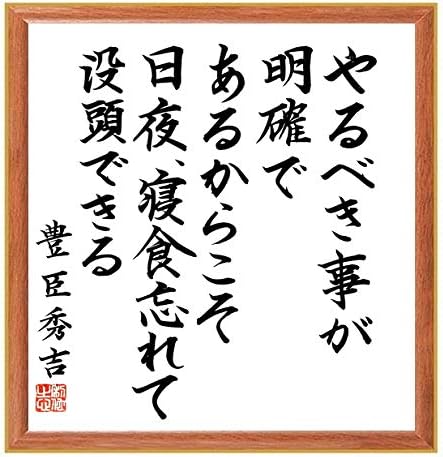 やるべき事が
明確で
あるからこそ
日夜、寝食忘れて
没頭できる
豊臣秀吉